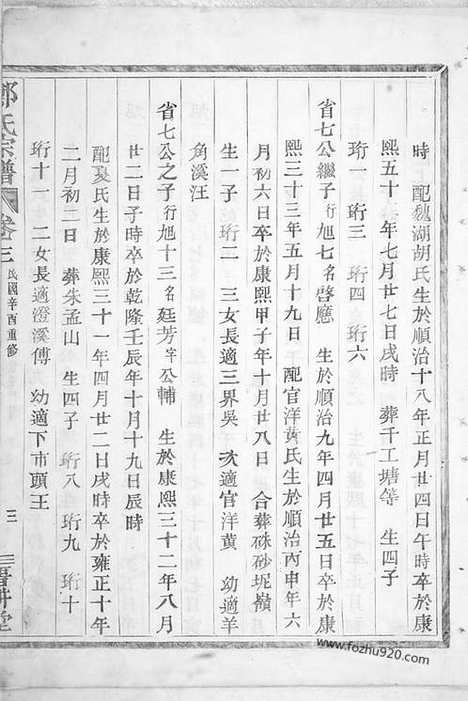 時 配魏湖胡氏生於順治十八年正月廿四日午時卒於康
熙五十 年七月廿七日戌時 葬千工塘等 生四子
珩一 珩三 珩四 珩六
省七公繼子行旭七名啓應 生於順治九年四月廿五日卒於康
熙三十三年五月十九日 配官洋黃氏生於順治丙申年六
月初六日卒於康熙甲子年十月廿八日 合葬硃砂坭嶺
生一子 珩二 三女長適三界吳 次適官洋黃 幼適羊
角溪汪
省七公之子行旭十三名廷芳字公輔 生於康熙三十二年八月
廿二日子時卒於乾隆壬辰年十月十九日辰時
配袁氏生於康熙三十一年四月廿二日戌時卒於雍正十年
二月初二日 葬朱孟山 生四子 珩八 珩九 珩十
珩十一 二女長適澄溪傅 幼適下市頭王
氏宗譜 卷三 民國辛酉重修 三 堂
www.fozhu920.com